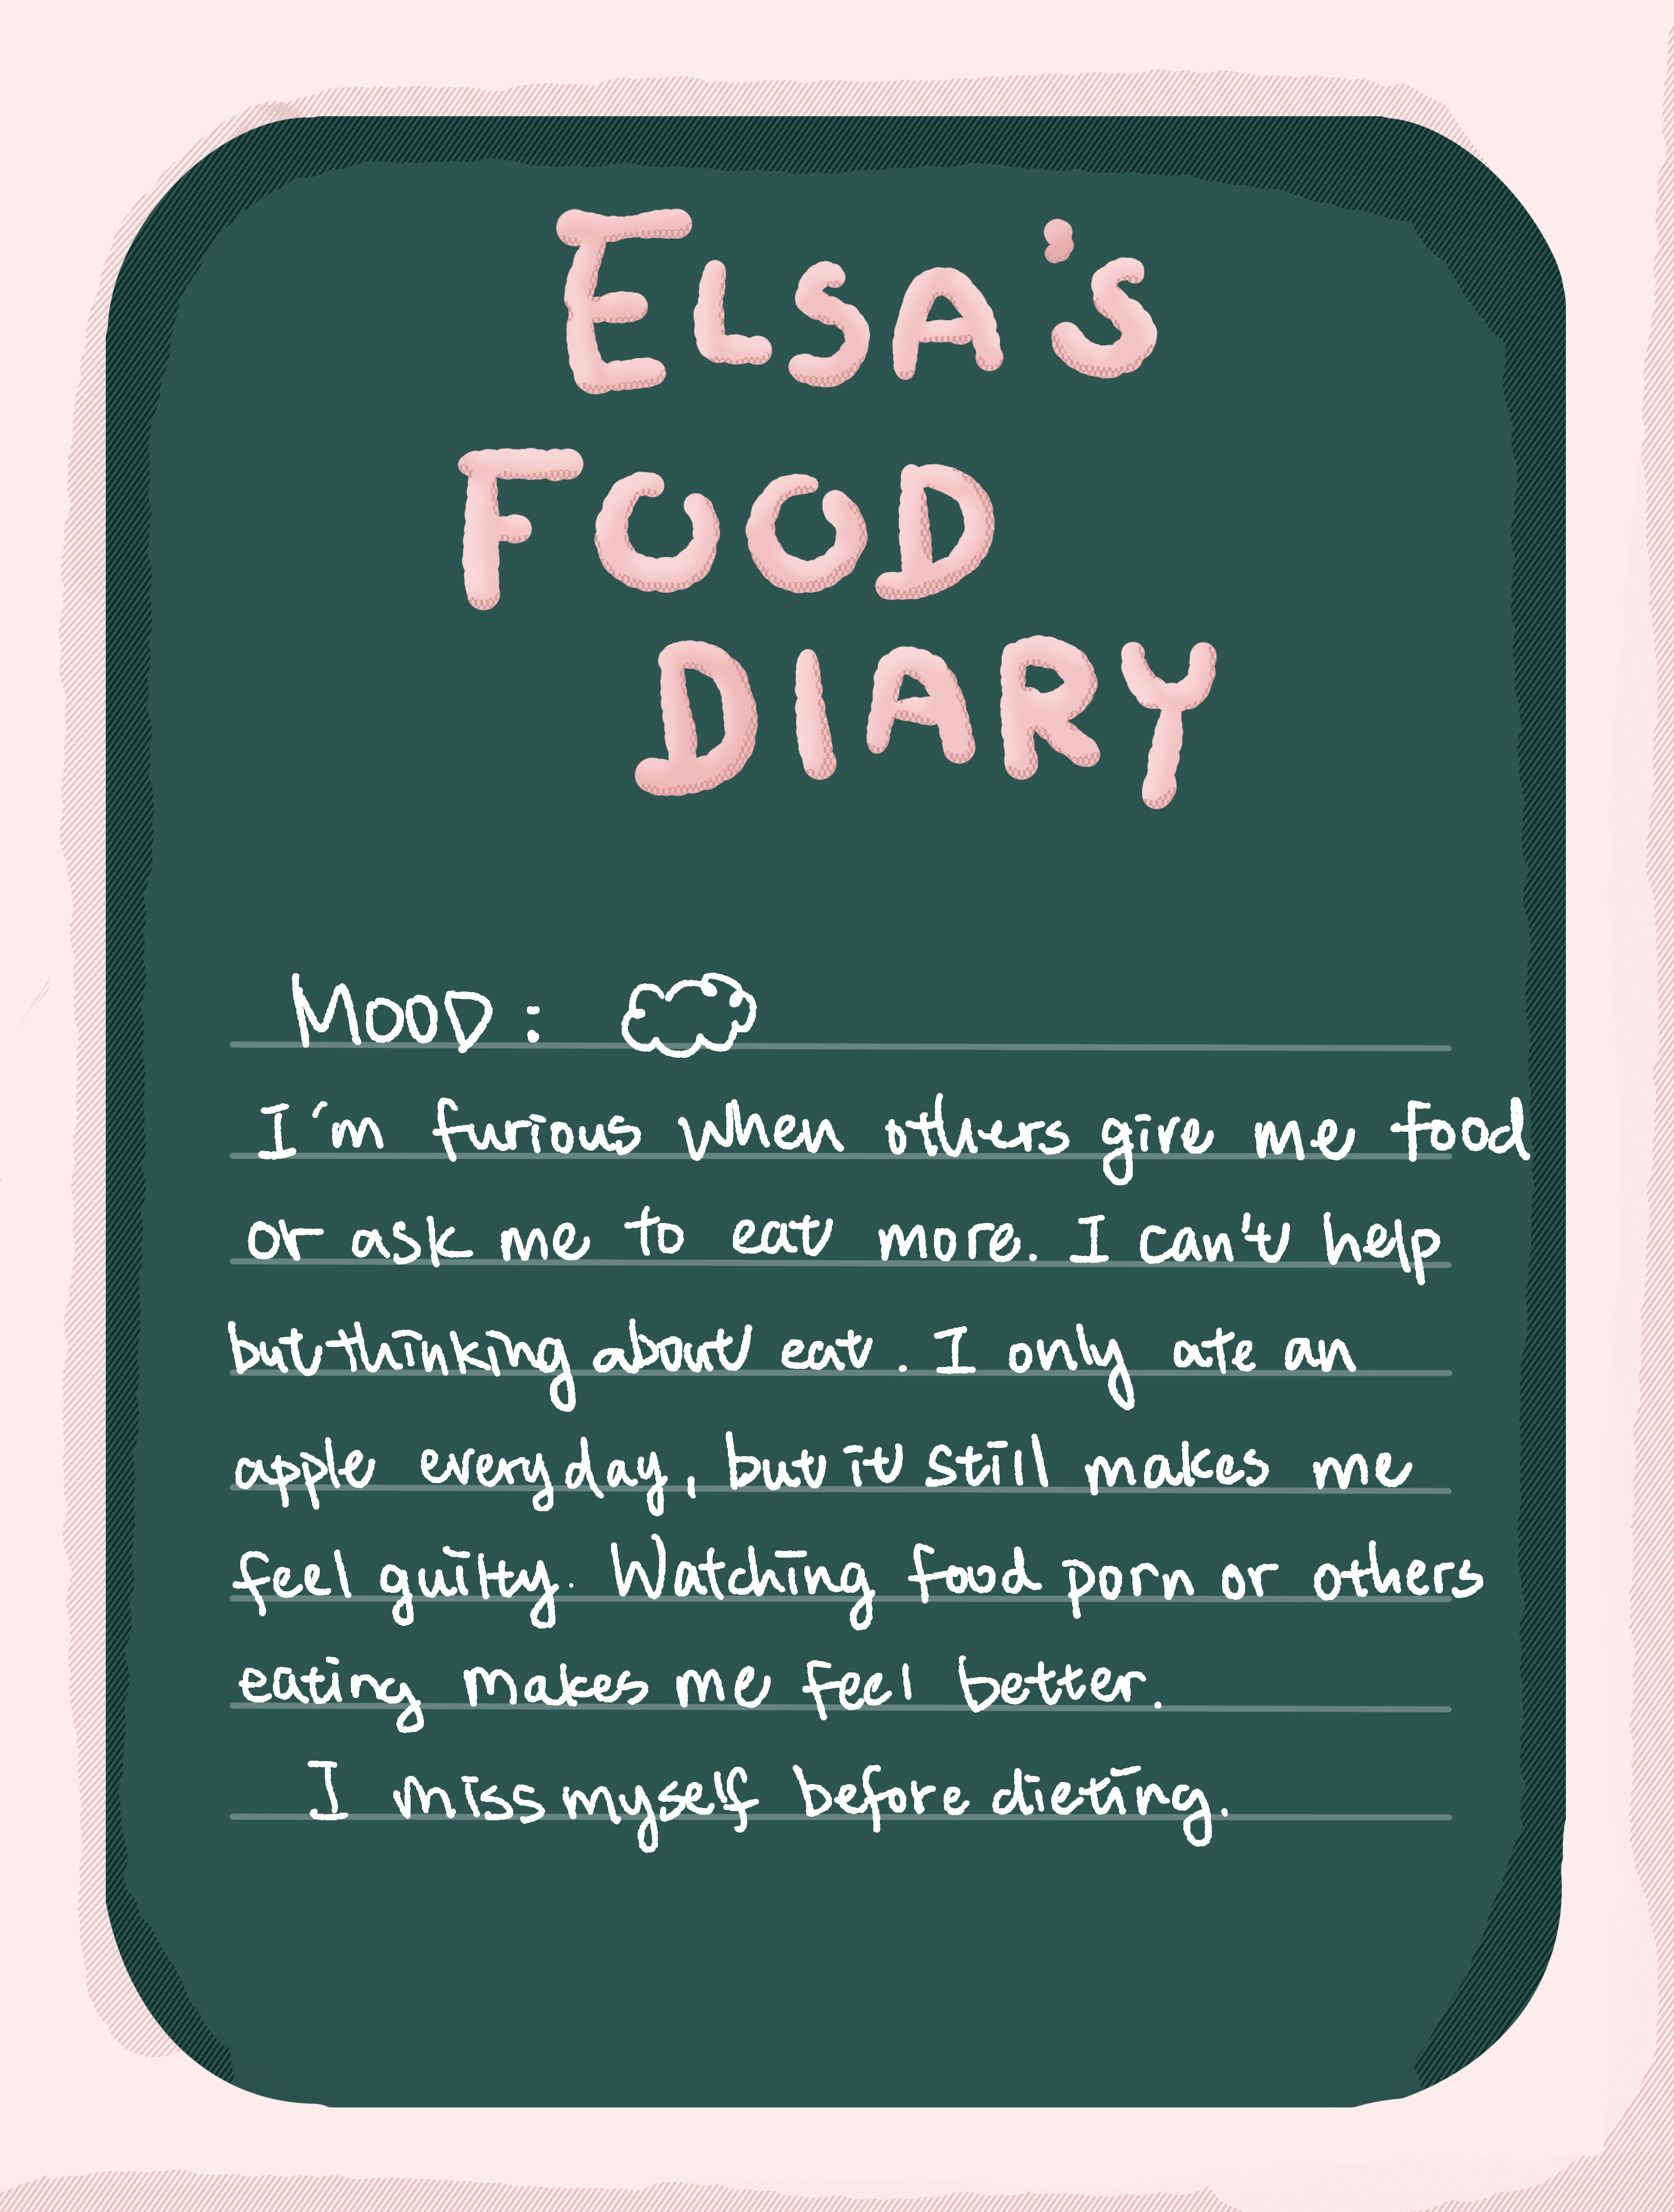 ELSA'S
FOOD
DIARY
MOOD:
I'm furious when others give me food
or ask me to eat more. I can't help
but thinking about eat. I only ate an
apple everyday, but it still makes me
feel guilty. Watching food porn or others
eating makes me feel better.
I miss myself before dieting.